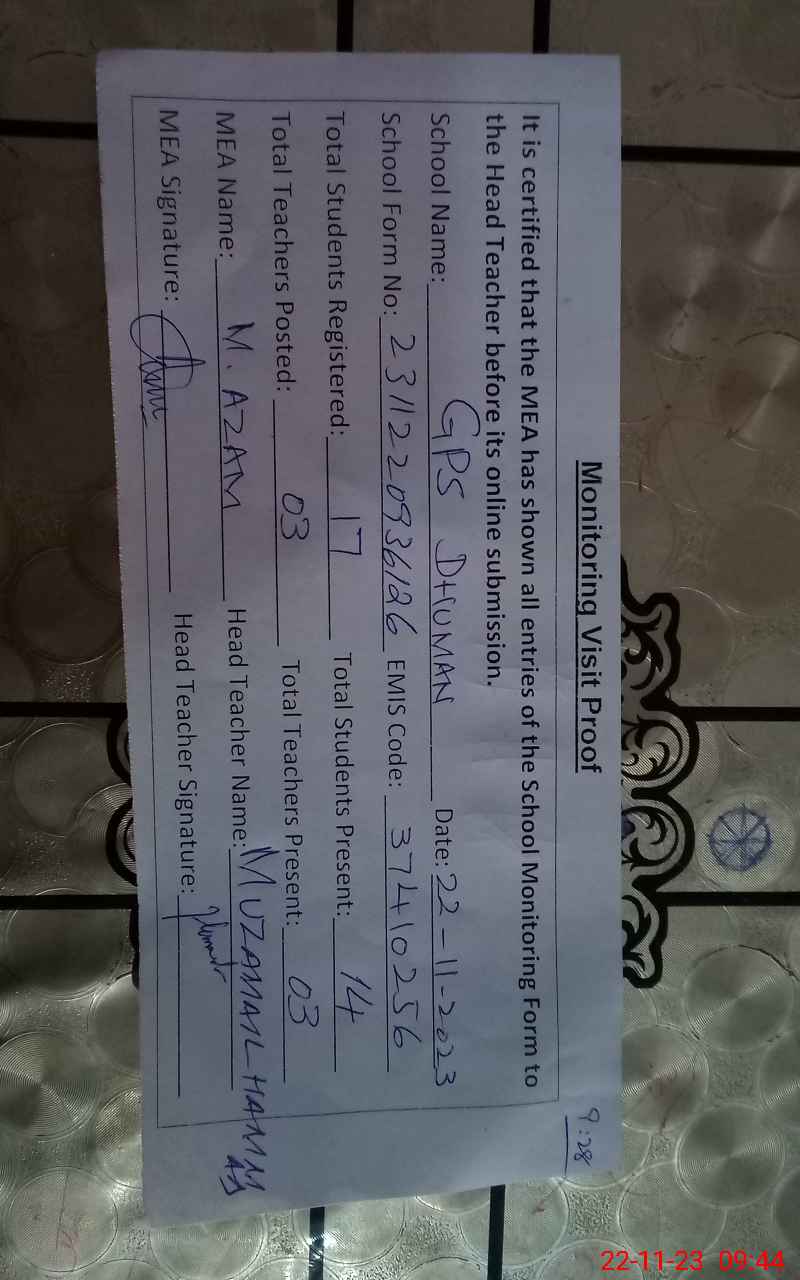 9:28
Monitoring Visit Proof
It is certified that the MEA has shown all entries of the School Monitoring Form to
the Head Teacher before its online submission.
School Name: GPS DHUMAN Date: 22-11-2023
School Form No: 2311220936126 EMIS Code: 37410256
Total Students Registered: 17 Total Students Present: 14
Total Teachers Posted: 03 Total Teachers Present: 03
MEA Name: M. AZAM Head Teacher Name: MUZAMAIL HAMM
MEA Signature: Head Teacher Signature:
22-11-23 09:44